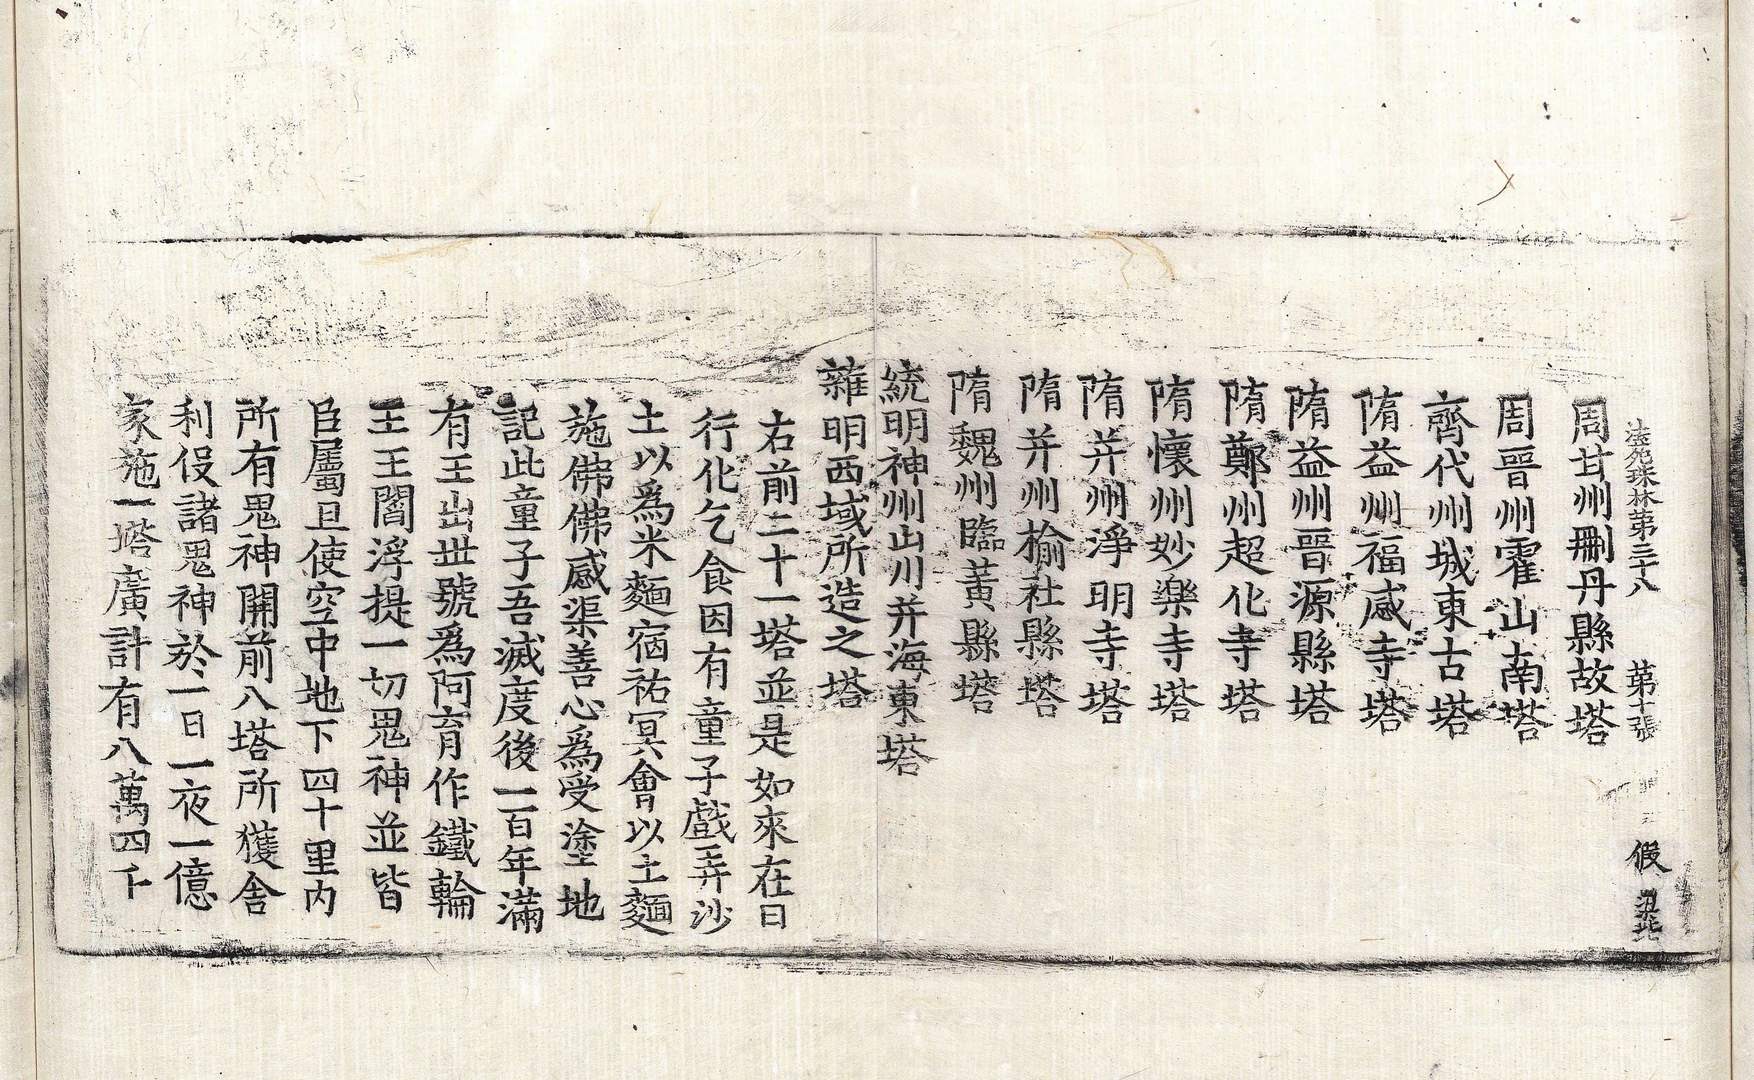 法苑珠林第三十八 第十張 假
周甘州刪丹縣故塔
周晉州霍山南塔
齊代州城東古塔
隋益州福感寺塔
隋益州晉源縣塔
隋鄭州超化寺塔
隋懷州妙樂寺塔
隋并州淨明寺塔
隋并州榆社縣塔
隋魏州臨黃縣塔
統明神州山川并海東塔
雜明西域所造之塔
右前二十一塔並是如來在日
行化乞食因有童子戲弄沙
土以爲米麵宿祐冥會以土麵
施佛佛感渠善心爲受塗地
記此童子吾滅度後一百年滿
有王出世號爲阿育作鐵輪
王王閻浮提一切鬼神並皆
臣屬且使空中地下四十里內
所有鬼神開前八塔所獲舍
利役諸鬼神於一日一夜一億
家施一塔廣計有八萬四千